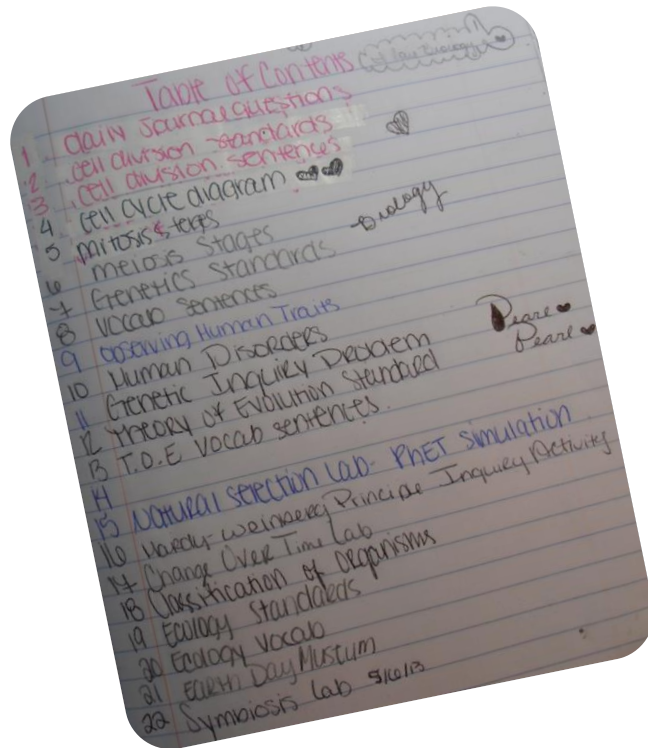 Table of Contents
1 daily journal questions
2 cell division standards
3 cell division sentences
4 cell cycle diagram
5 mitosis steps
6 meiosis stages
7 Genetics Standards
Biology
8 vocab sentences
9 observing Human Traits
10 Human Disorders
11 Genetic Inquiry Problem
Pearl
Pearl
12 Theory of Evolution Standard
13 T.O.E vocab sentences.
14
15 Natural selection Lab- PhET simulation
16 Hardy-Weinberg Principle Inquiry Activity
17 Change Over Time Lab
18 Classification of organisms
19 Ecology Standards
20 Ecology vocab
21 Earth Day Mustum
22 Symbiosis Lab 5/6/13